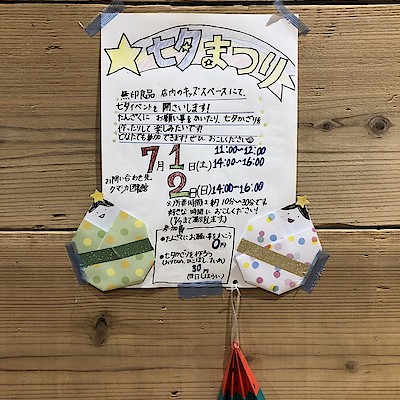 七夕まつり
無印良品 店内のキッズスペースにて、
七夕イベントを 開さいします!
たんざくに お願い事をかいたり、七夕かざりを
作ったりして 楽しみたいです!
どなたでも参加できます!ぜひ、おこしください
7月1日(土) 11:00~12:00
14:00~16:00
2日(日) 14:00~16:00
お問い合わせ先
※所要時間は約10分~30分です。
好きな時間に おこしください!
参加費
•たんざくにお願い事をかこう
0円
•七夕かざりを作ろう
30円